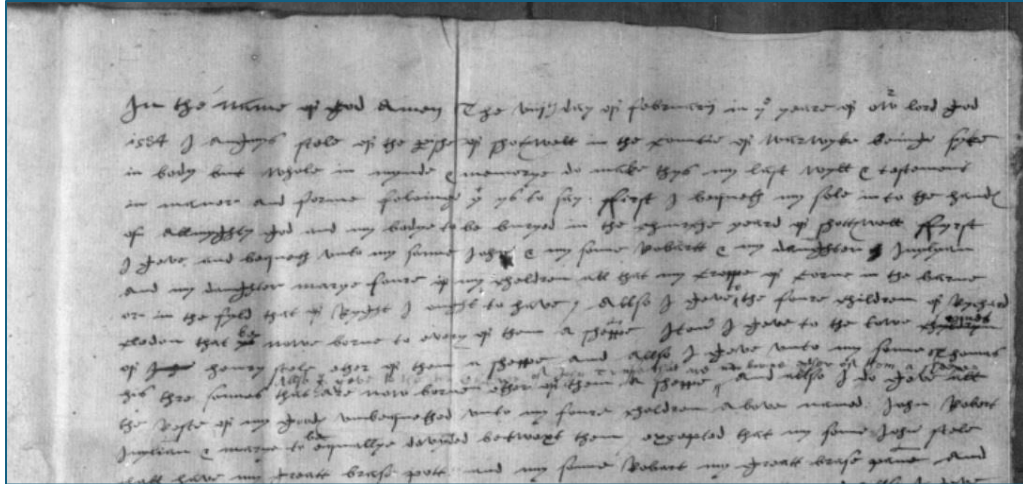 In the name of god Amen The viijth day of february in ye yeare of owr lord god
1584 I Angnys stole of the pishe of shotswell in the Countie of warwyke beinge syke
in body but whole in mynde & memorye do make thys my last wyll & testement
in maner and forme foloinge yt ys to say ffirst I bequeth my sole into the hands
of Allmyghty god and my bodye to be buryed in the churche yeard of shottswell ffyrst
I geve and bequeth unto my sonne John & my sonne Robartt & my daughter Jnylian
and my daughter marye foure of my children all that my croppe of corne in the barne
or in the fyld that of Ryght I ought to have Allso I geve to the foure children of Rychard
that be nowe borne to every of them a sheppe Item I geve to the towe
of henry stole ether of them a sheppe and allso I geve unto my sonne Thomas
his thre sonnes that are now borne ether of them a sheppe And allso I do geve all
the Reste of my goods unbequethed unto my foure children above named John Robert
Jnylian & marye to be equallye devyded betwext them excepted that my sonne John stole
shall have my greatt brase pott and my sonne Robart my greatt brase panne And